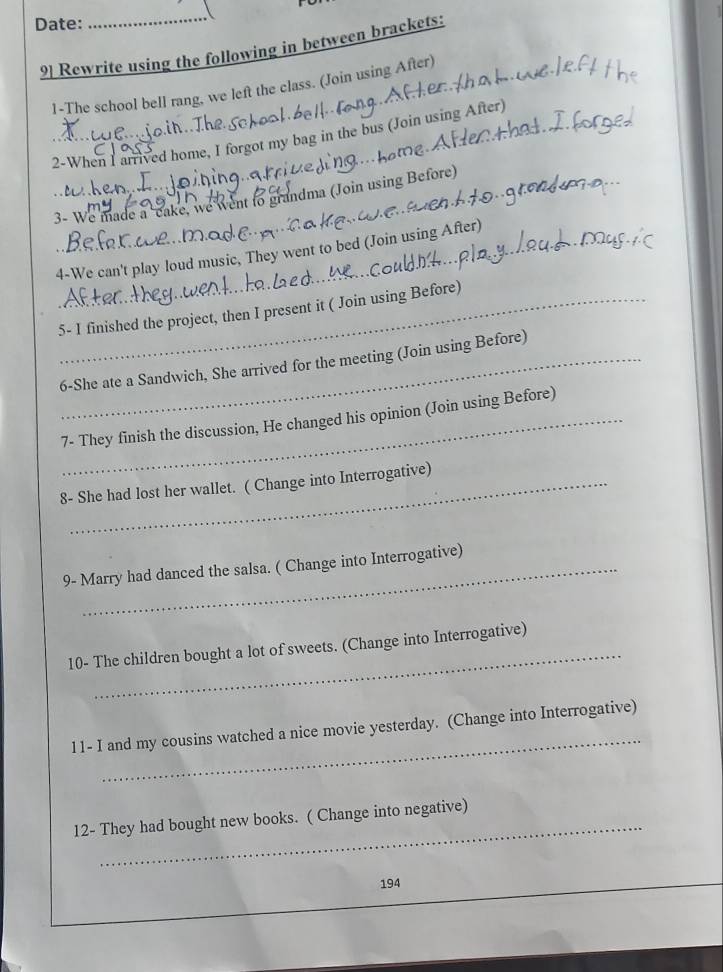 Date:
9] Rewrite using the following in between brackets:
1-The school bell rang, we left the class. (Join using After)
we join The school bell rang After that we left the
class
2-When I arrived home, I forgot my bag in the bus (Join using After)
when I joining arriveding home After that I forged
my bag in the bus
3- We made a cake, we went to grandma (Join using Before)
Befor we made a cake we went to grandma
4-We can't play loud music, They went to bed (Join using After)
After they went to bed we couldn't play loud music
5- I finished the project, then I present it ( Join using Before)
6-She ate a Sandwich, She arrived for the meeting (Join using Before)
7- They finish the discussion, He changed his opinion (Join using Before)
8- She had lost her wallet. ( Change into Interrogative)
9- Marry had danced the salsa. ( Change into Interrogative)
10- The children bought a lot of sweets. (Change into Interrogative)
11- I and my cousins watched a nice movie yesterday. (Change into Interrogative)
12- They had bought new books. ( Change into negative)
194